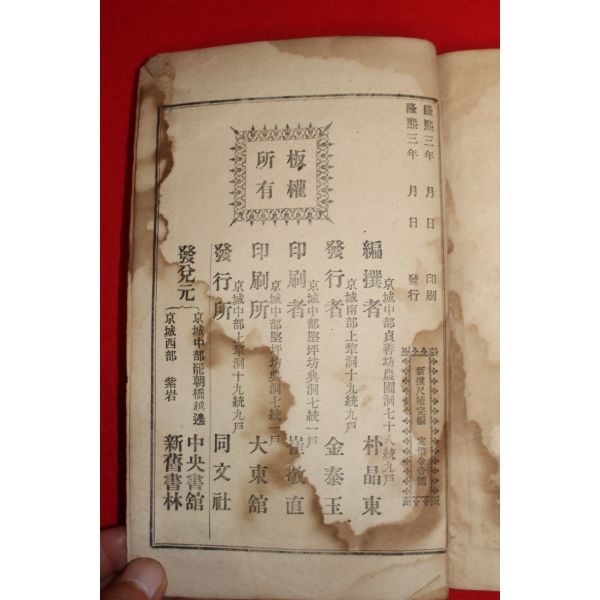 隆熙三年 月 日 印刷
隆熙三年 月 日 發行
新撰尺牘完編 定價金壹圜
板權
所有
京城中部貞善坊農圃洞七十八統九戶
編撰者 朴晶東
京城南部上犁洞十九統九戶
發行者 金泰玉
京城中部堅坪坊典洞七統一戶
印刷者 崔敬直
京城中部堅坪坊典洞七統一戶
印刷所 大東舘
京城中部上犁洞十九統九戶
發行所 同文社
發兌元
京城中部罷朝橋越邊 中央書舘
京城西部 紫岩 新舊書林